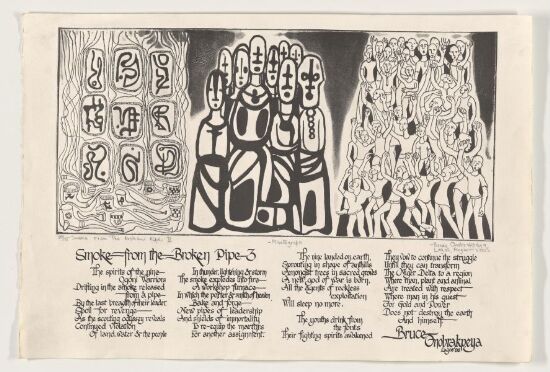 Smoke from The Broken Pipe
Plastograph
Bruce Onobrakpeya
Smoke—from the—Broken Pipe—3
The spirits of the nine—
Ogoni Warriors
Drifting in the smoke released
from a pipe—
By the last breath of their leader
Spoil for revenge—
As the scouting odyssey reveals
Continued violation
Of land, water & the people
In thunder, lightening & storm
The smoke explodes into fire—
Of a workshop furnace—
In which the potter & smith of heaven
Bake and forge—
New pipes of leadership
And shields of immortality
To re-equip the martyrs
For another assignment.
The nine landed on earth,
Sprouting in shape of anthills
Amongst trees in sacred groves
A new god of war is born.
All the agents of reckless
exploitation
Will sleep no more.
The youths drink from
the fonts
Their fighting spirits awakened
They vow to continue the struggle
Until they can transform
The Niger Delta to a region
Where man, plant and animal
Are treated with respect
Where man in his quest
For Gold and Power
Does not destroy the earth
And himself—
Bruce
Onobrakpeya